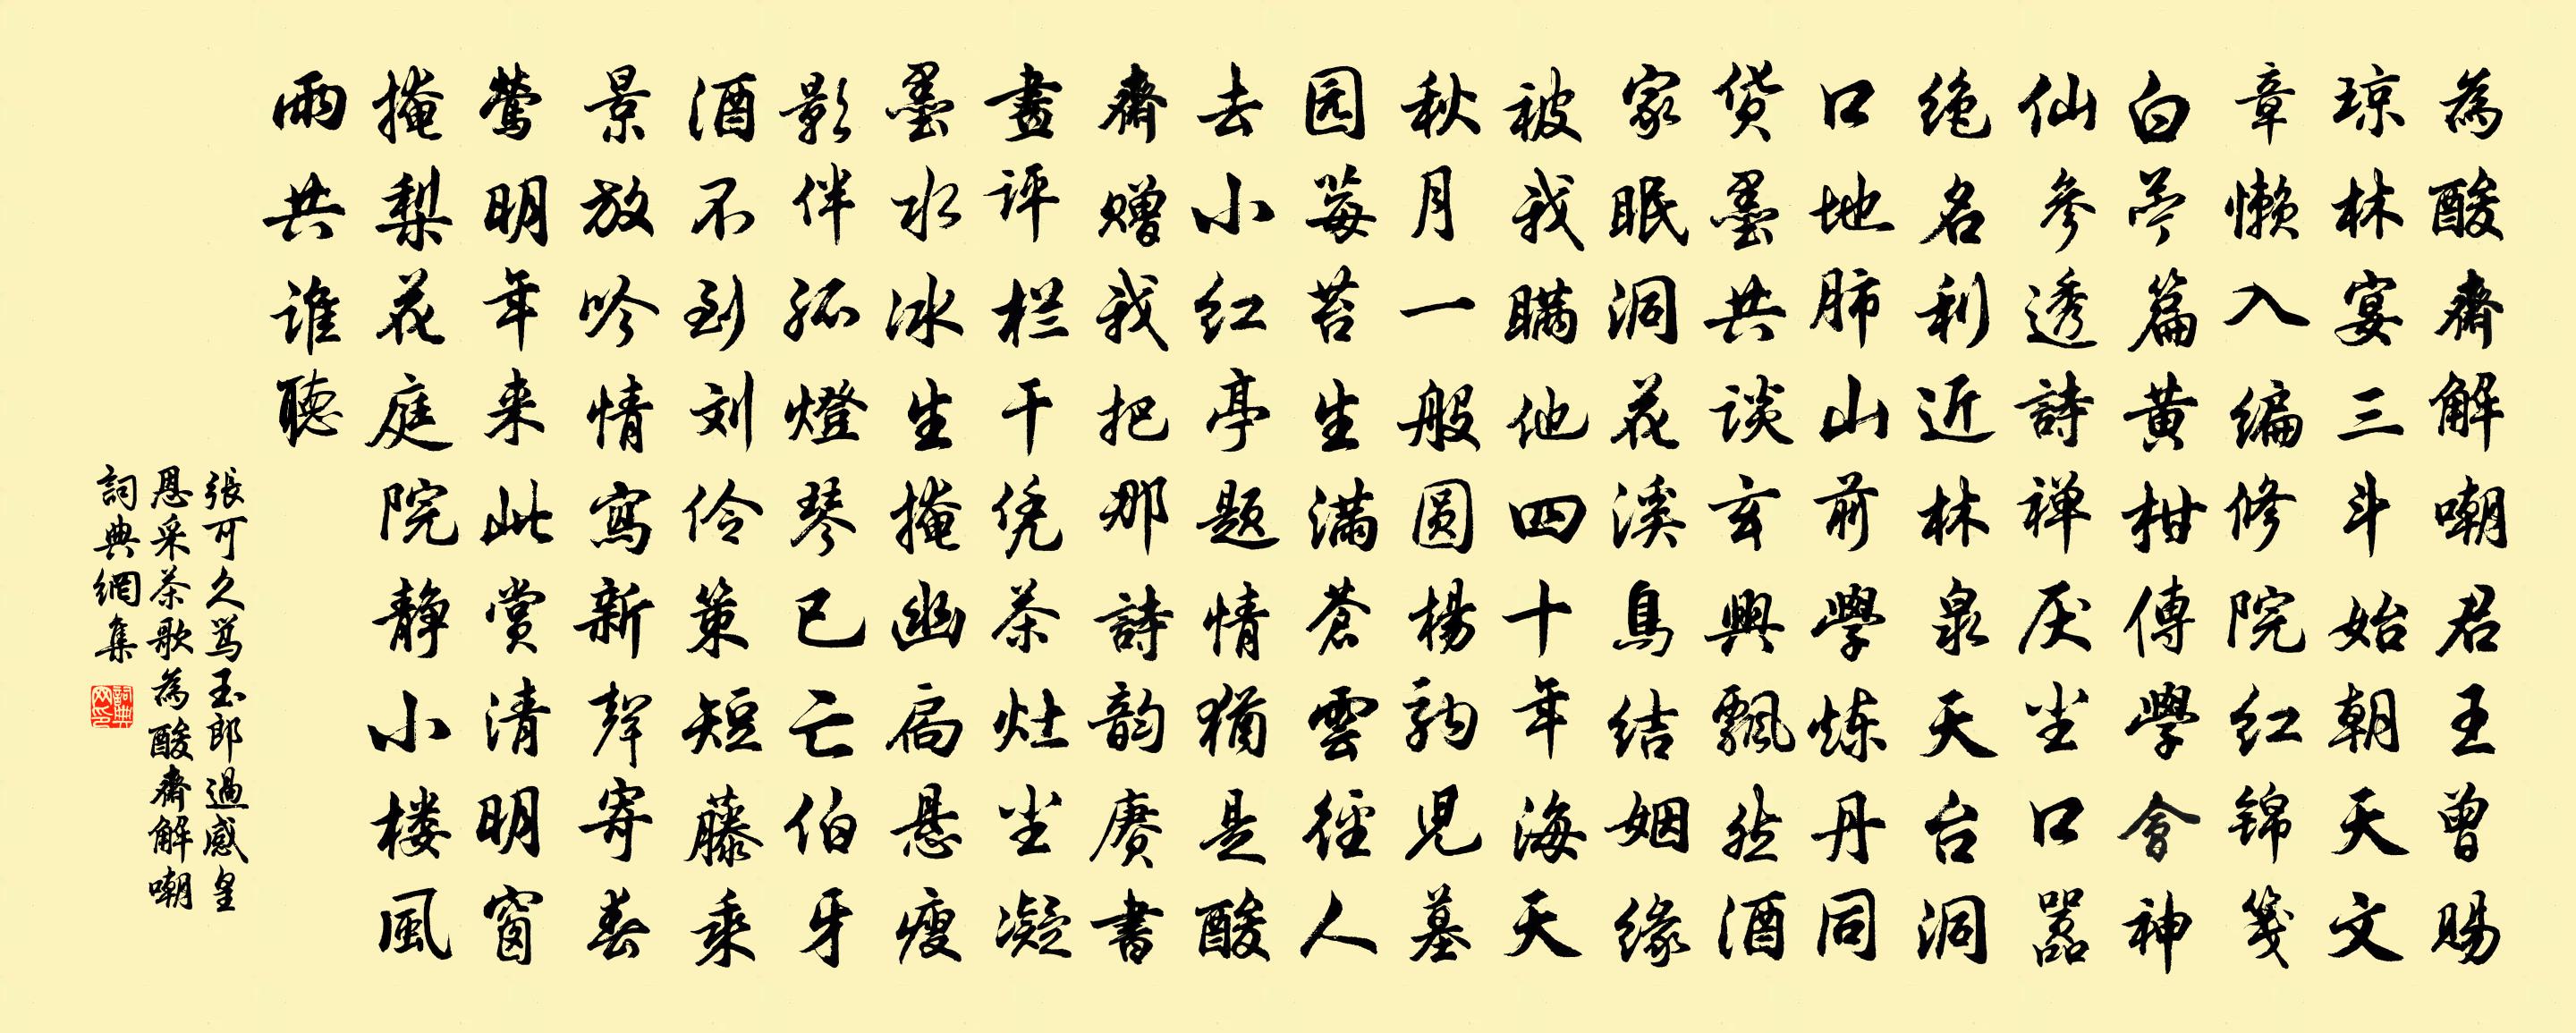 為酸齋解嘲君王曾賜
琼林宴三斗始朝天文
章懒入编修院红锦笺
白苎篇黄柑傳學會神
仙參透詩禅厌尘口嚣
绝名利近林泉天台洞
口地肺山前學炼丹同
货墨共谈玄興飄然酒
家眠洞花溪鳥结姻缘
被我瞒他四十年海天
秋月一般圆楊駒兒墓
园莓苔生满蒼雲徑人
去小红亭题情猶是酸
齋赠我把那詩韵赓書
畫评栏干凭茶灶尘凝
墨水冰生掩幽扃悬瘦
影伴孤燈琴已亡伯牙
酒不到刘伶策短藤乘
景放吟情寫新聲寄春
莺明年来此赏清明窗
掩梨花庭院静小楼風
雨共谁聽
張可久骂玉郎過感皇
恩采茶歌為酸齋解嘲
詞典網集
詞典网印